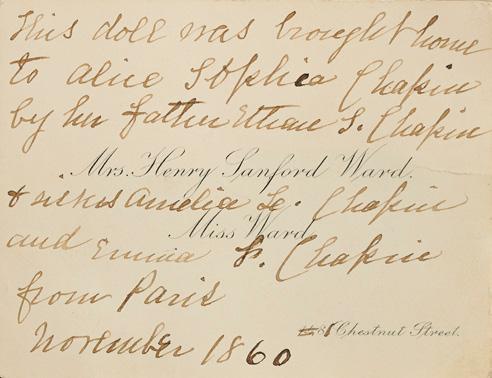 This doll was brought home
to Alice Sophia Chapin
by her father Ethan S. Chapin
Mrs. Henry Sanford Ward.
& sisters Amelia L. Chapin
Miss Ward
and Emma S. Chapin
from Paris
81 Chestnut Street.
November 1860